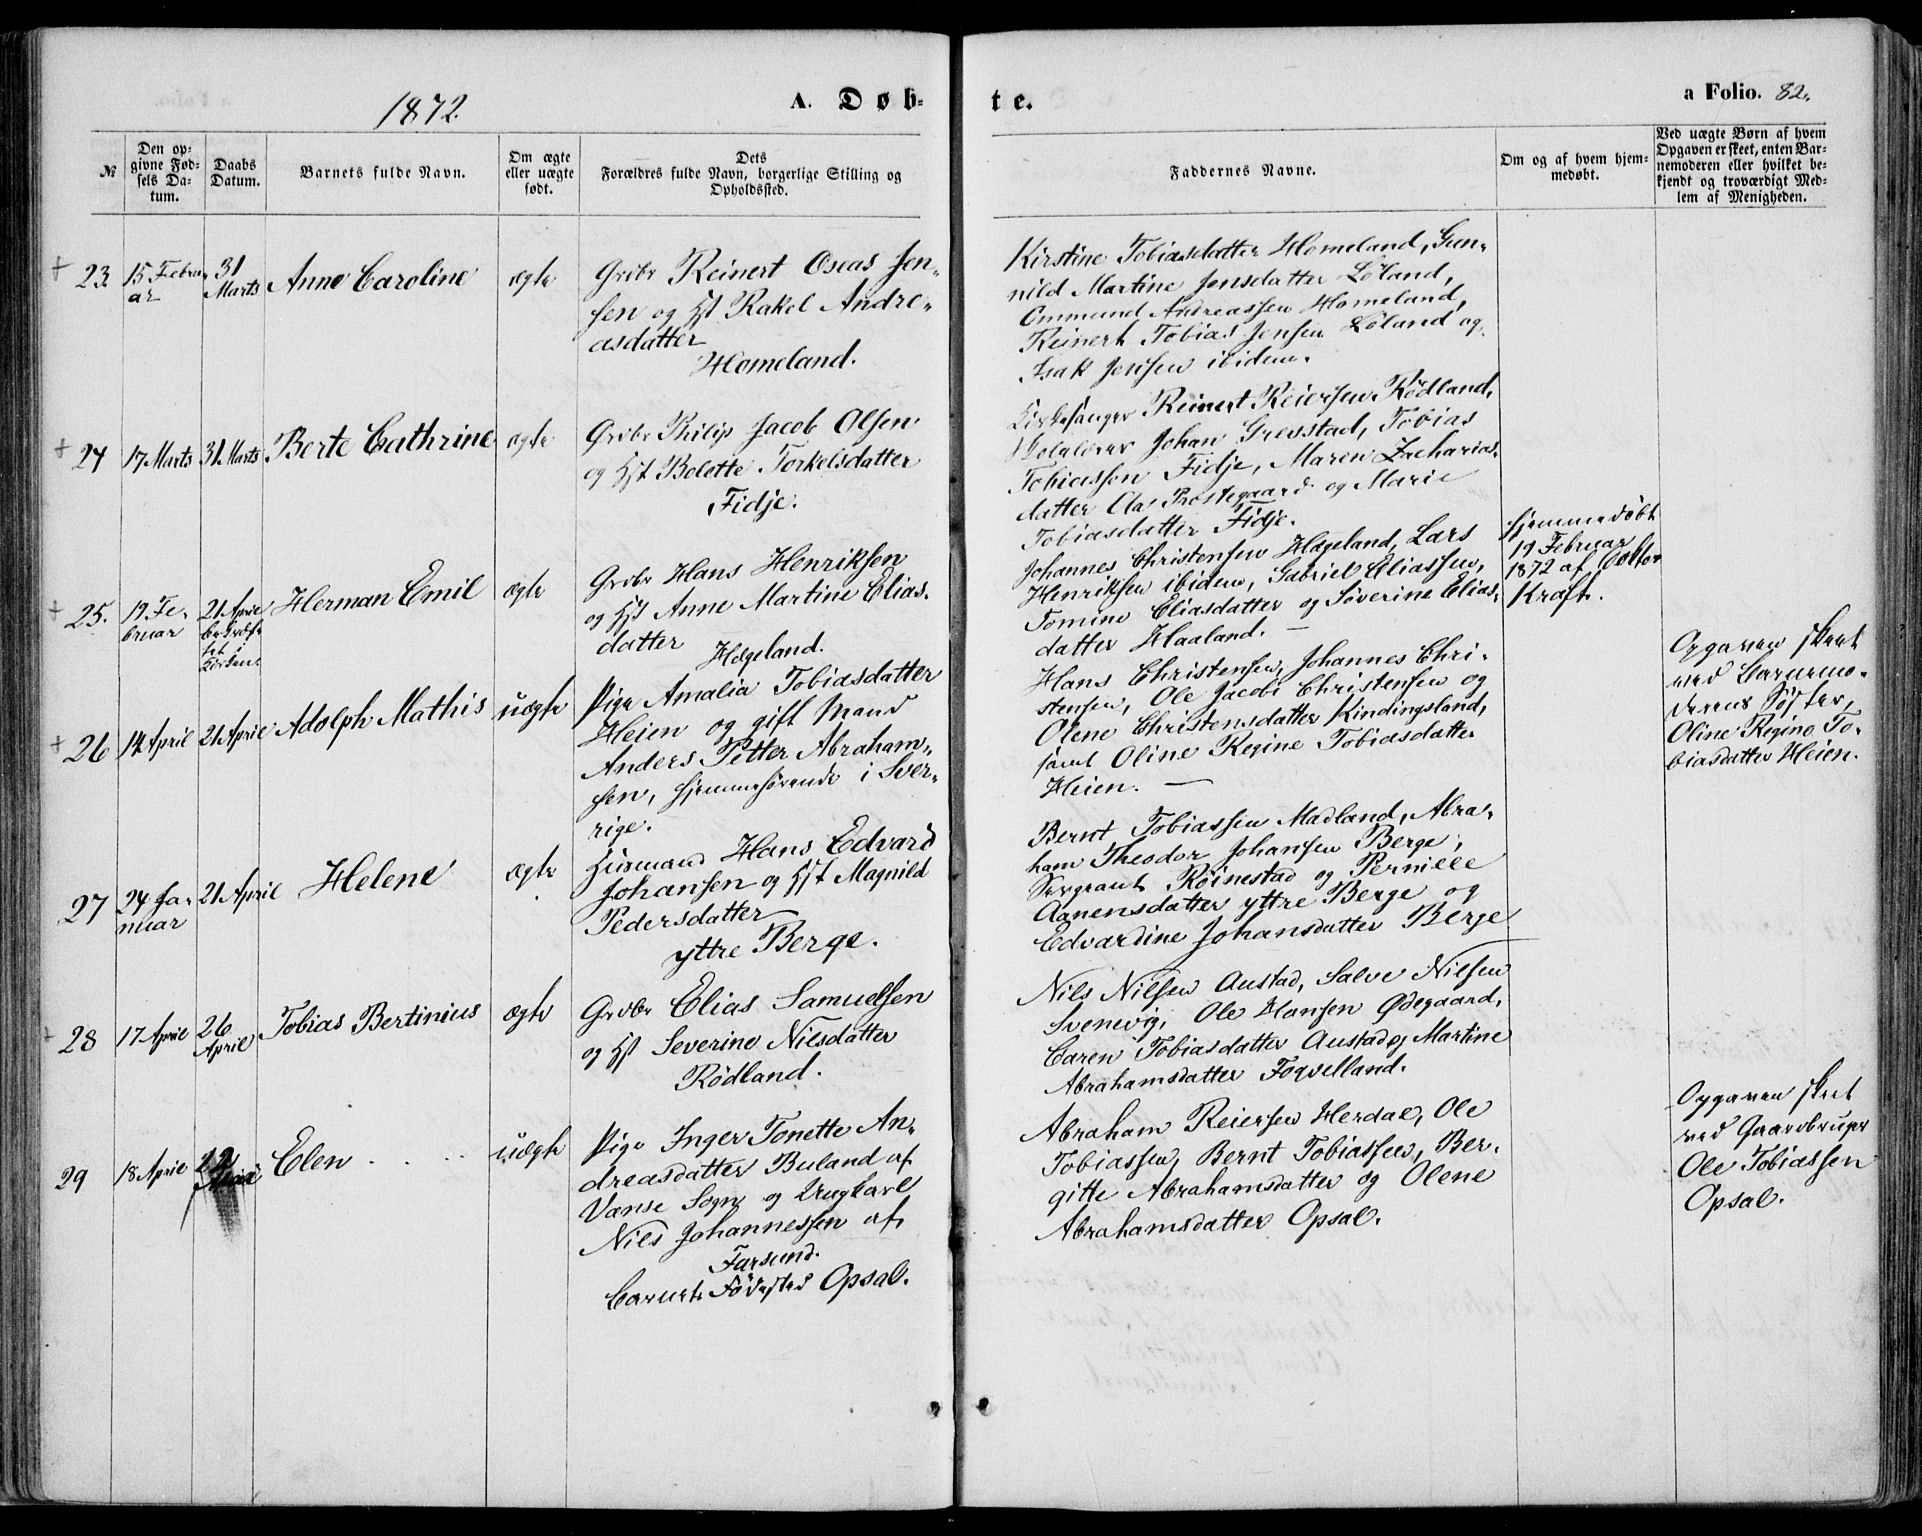 1872.
A. Døb-
te.
a Folio. 82.
№
Den op-
givne Fød-
sels Da-
tum.
Daabs
Datum.
Barnets fulde Navn.
Om ægte
eller uægte
født.
Dets
Forældres fulde Navn, borgerlige Stilling og
Opholdssted.
Faddernes Navne.
Om og af hvem hjem-
medøbt.
Ved uægte Børn af hvem
Opgaven er skeet, enten Bar-
nemoderen eller hvilket be-
kjendt og troværdigt Med-
lem af Menigheden.
23
15 Febru-
ar
31
Marts
Anne Caroline
ægte
Grdbr Reinert Oseas Jen-
sen og Hst Rakel Andre-
asdatter
Homeland.
Kirstine Tobiasdatter Homeland, Gun-
nild Martine Jensdatter Løland,
Ommund Andreassen Homeland,
Reinert Tobias Jensen Løland og
Isak Jensen ibidem.
24
17 Marts
31 Marts
Berte Cathrine
ægte
Grdbr Philip Jacob Olsen
og Hst Bolette Torkelsdatter
Fidje.
Kirkesanger Reinert Reiersen Rødland,
Johan Gresstad, Tobias
Tobiassen Fidje, Maren Zacharias-
datter Aa Prestegaard og Marie
Tobiasdatter Fidje.
25.
19 Fe-
bruar
21 April
bekræf-
tet i
Kirken.
Herman Emil
ægte
Grdbr Hans Henriksen
og Hst Anne Martine Elias-
datter
Hægeland.
Johannes Christensen Hægeland, Lars
Henriksen ibidem, Gabriel Eliassen,
Tomine Eliasdatter og Søverine Elias-
datter Haaland.
Hjemmedøbt
19 Februar
1872 af Doktor
Kraft.
26
14 April
21 April
Adolph Mathis
uægte
Pige Amalia Tobiasdatter
Heien og gift Mand
Anders Petter Abraham-
sen, hjemmehørende i Sver-
rige.
Hans Christensen, Johannes Chri-
stensen, Ole Jacob Christensen og
Olene Christensdatter Kindingsland,
samt Oline Regine Tobiasdatter
Heien.
Opgaven skeet
ved Barnemo-
derens Søster,
Oline Regine To-
biasdatter Heien.
27
24 Ja-
nuar
21 April
Helene
ægte
Husmand Hans Edvard
Johansen og Hst Magnild
Pedersdatter
yttre Berge.
Bernt Tobiassen Madland, Abra-
ham Theodor Johansen Berge,
Sergeant Røinestad og Pernille
Aanensdatter yttre Berge og
Edvardine Johansdatter Berge
28
17 April
26
April
Tobias Bertinius
ægte
Grdbr Elias Samuelsen
og Hst Severine Nilsdatter
Rødland.
Nils Nilsen Austad, Salve Nilsen
Svenevig, Ole Hansen Ødegaard,
Caren Tobiasdatter Austad og Martine
Abrahamsdatter Foqvelland.
29
18 April
Elen
uægte
Pige Inger Tonette An-
dreasdatter Buland af
Vanse Sogn og Ungkarl
Nils Johannessen af
Farsund.
Barnets Fødested Opsal.
Abraham Reiersen Herdal, Ole
Tobiassen, Bernt Tobiassen, Ber-
gitte Abrahamsdatter og Olene
Abrahamsdatter Opsal.
Opgaven skeet
ved Gaardbruger
Ole Tobiassen
Opsal.